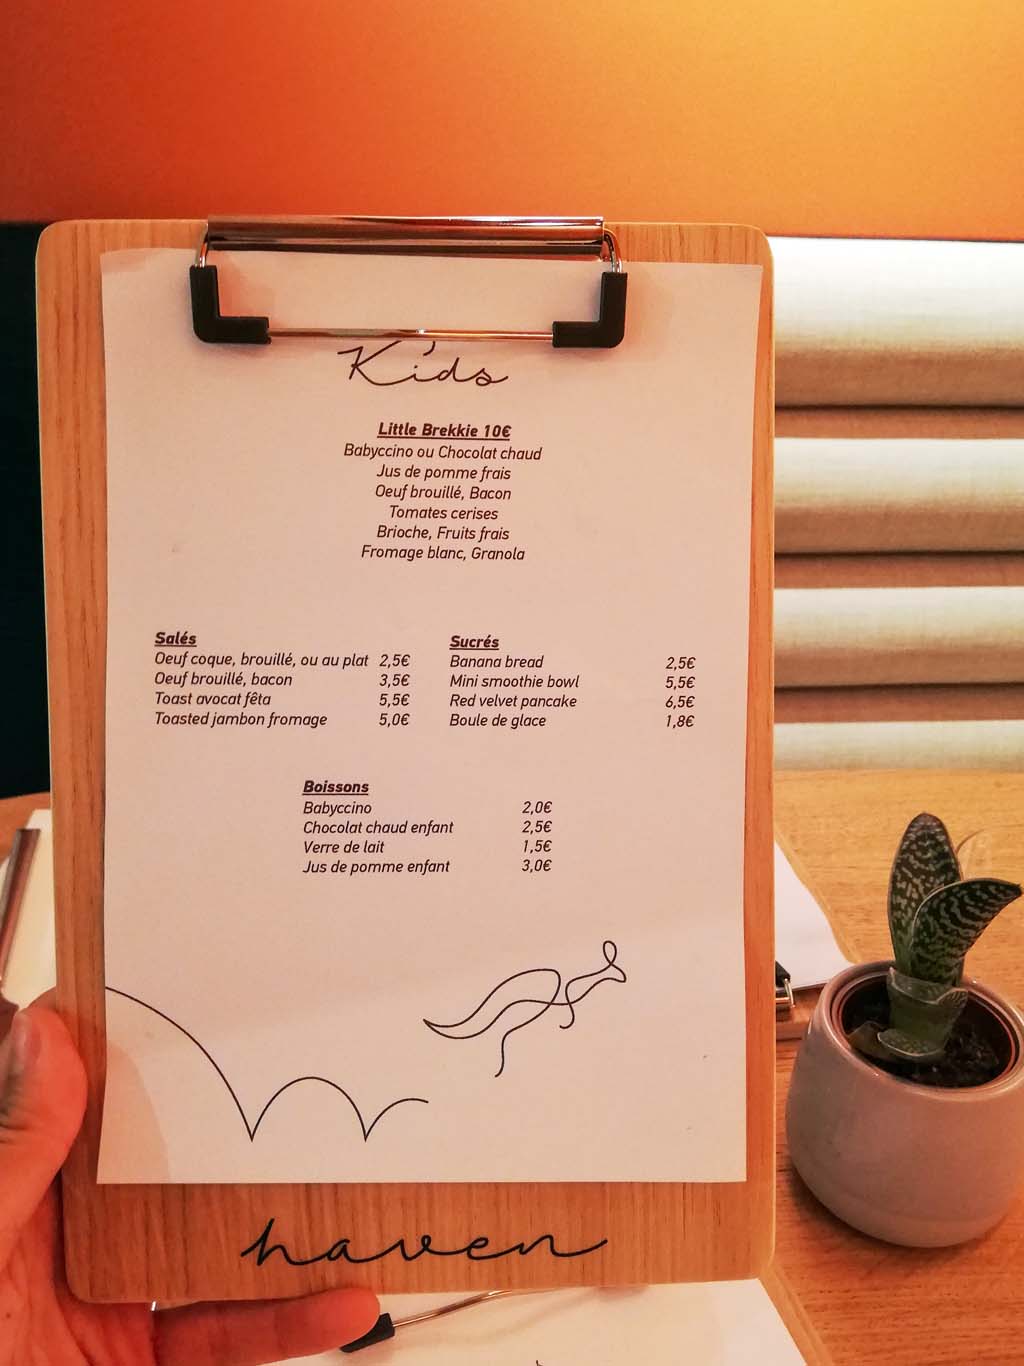 Kids
Little Brekkie 10€
Babyccino ou Chocolat chaud
Jus de pomme frais
Oeuf brouillé, Bacon
Tomates cerises
Brioche, Fruits frais
Fromage blanc, Granola
Salés
Oeuf coque, brouillé, ou au plat 2,5€
Oeuf brouillé, bacon 3,5€
Toast avocat fêta 5,5€
Toasted jambon fromage 5,0€
Sucrés
Banana bread 2,5€
Mini smoothie bowl 5,5€
Red velvet pancake 6,5€
Boule de glace 1,8€
Boissons
Babyccino 2,0€
Chocolat chaud enfant 2,5€
Verre de lait 1,5€
Jus de pomme enfant 3,0€
haven